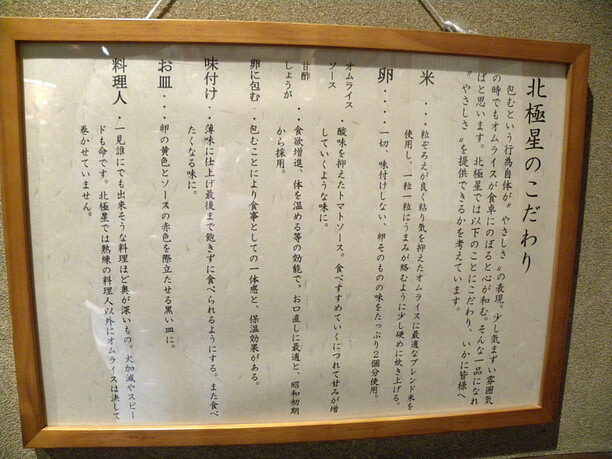 北極星のこだわり
包むという行為自体が〝やさしさ〟の表現。少し気まずい雰囲気
の時でもオムライスが食卓にのぼると心が和む。そんな一品になれ
ばと思います。北極星では以下のことにこだわり、いかに皆様へ
〝やさしさ〟を提供できるかを考えています。
米・・・・粒ぞろえが良く粘り気を抑えたオムライスに最適なブレンド米を
使用し、一粒一粒にうまみが絡むように少し硬めに炊き上げる。
卵・・・・一切、味付けしない、卵そのものの味をたっぷり2個分使用。
オムライス
ソース・・酸味を抑えたトマトソース。食べすすめていくにつれて甘みが増
していくような味に。
甘酢
しょうが・・食欲増進、体を温める等の効能で、お口直しに最適と、昭和初期
から採用。
卵に包む・・包むことにより食事としての一体感と、保温効果がある。
味付け・・薄味に仕上げ最後まで飽きずに食べられるようにする。また食べ
たくなる味に。
お皿・・・卵の黄色とソースの赤色を際立たせる黒い皿に。
料理人・・一見誰にでも出来そうな料理ほど奥が深いもの。火加減やスピー
ドも命です。北極星では熟練の料理人以外にオムライスは決して
巻かせていません。